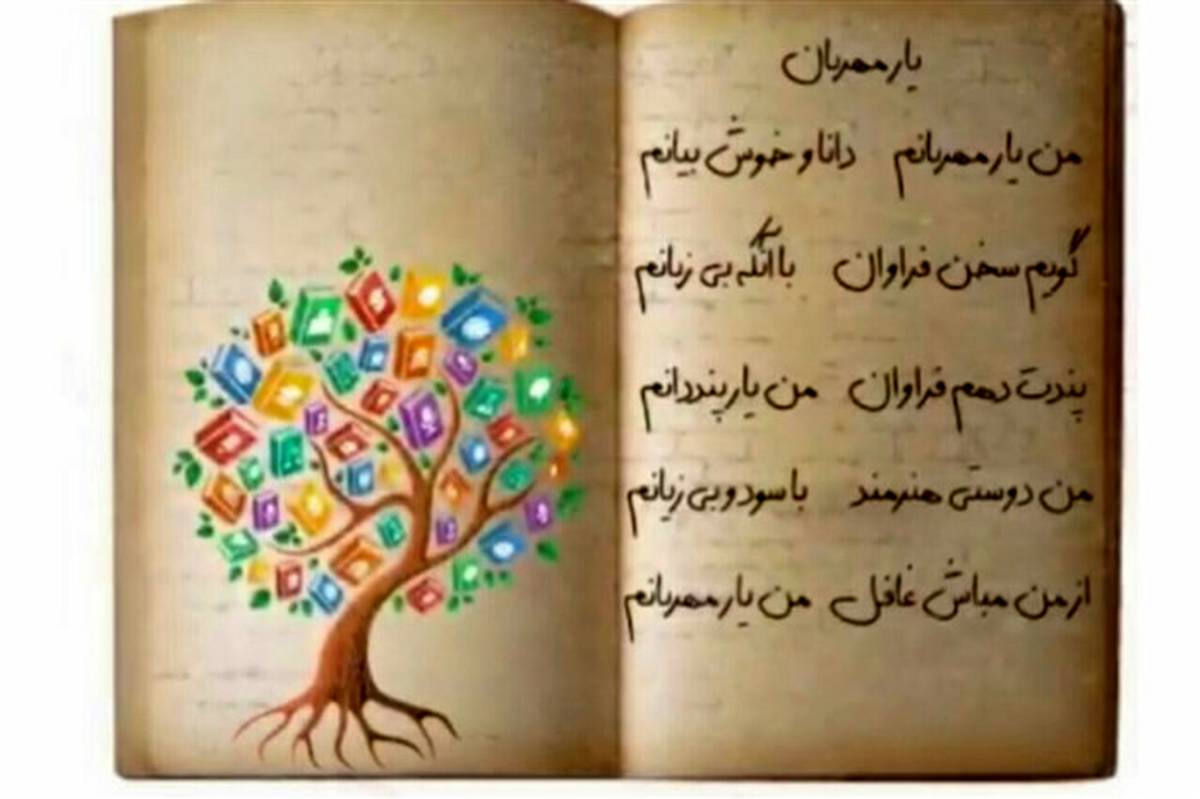 یار مهربان
من یار مهربانم دانا و خوش بیانم
گویم سخن فراوان با آنکه بی زبانم
پندت دهم فراوان من یار پند دانم
من دوستی هنرمند با سود و بی زیانم
از من مباش غافل من یار مهربانم